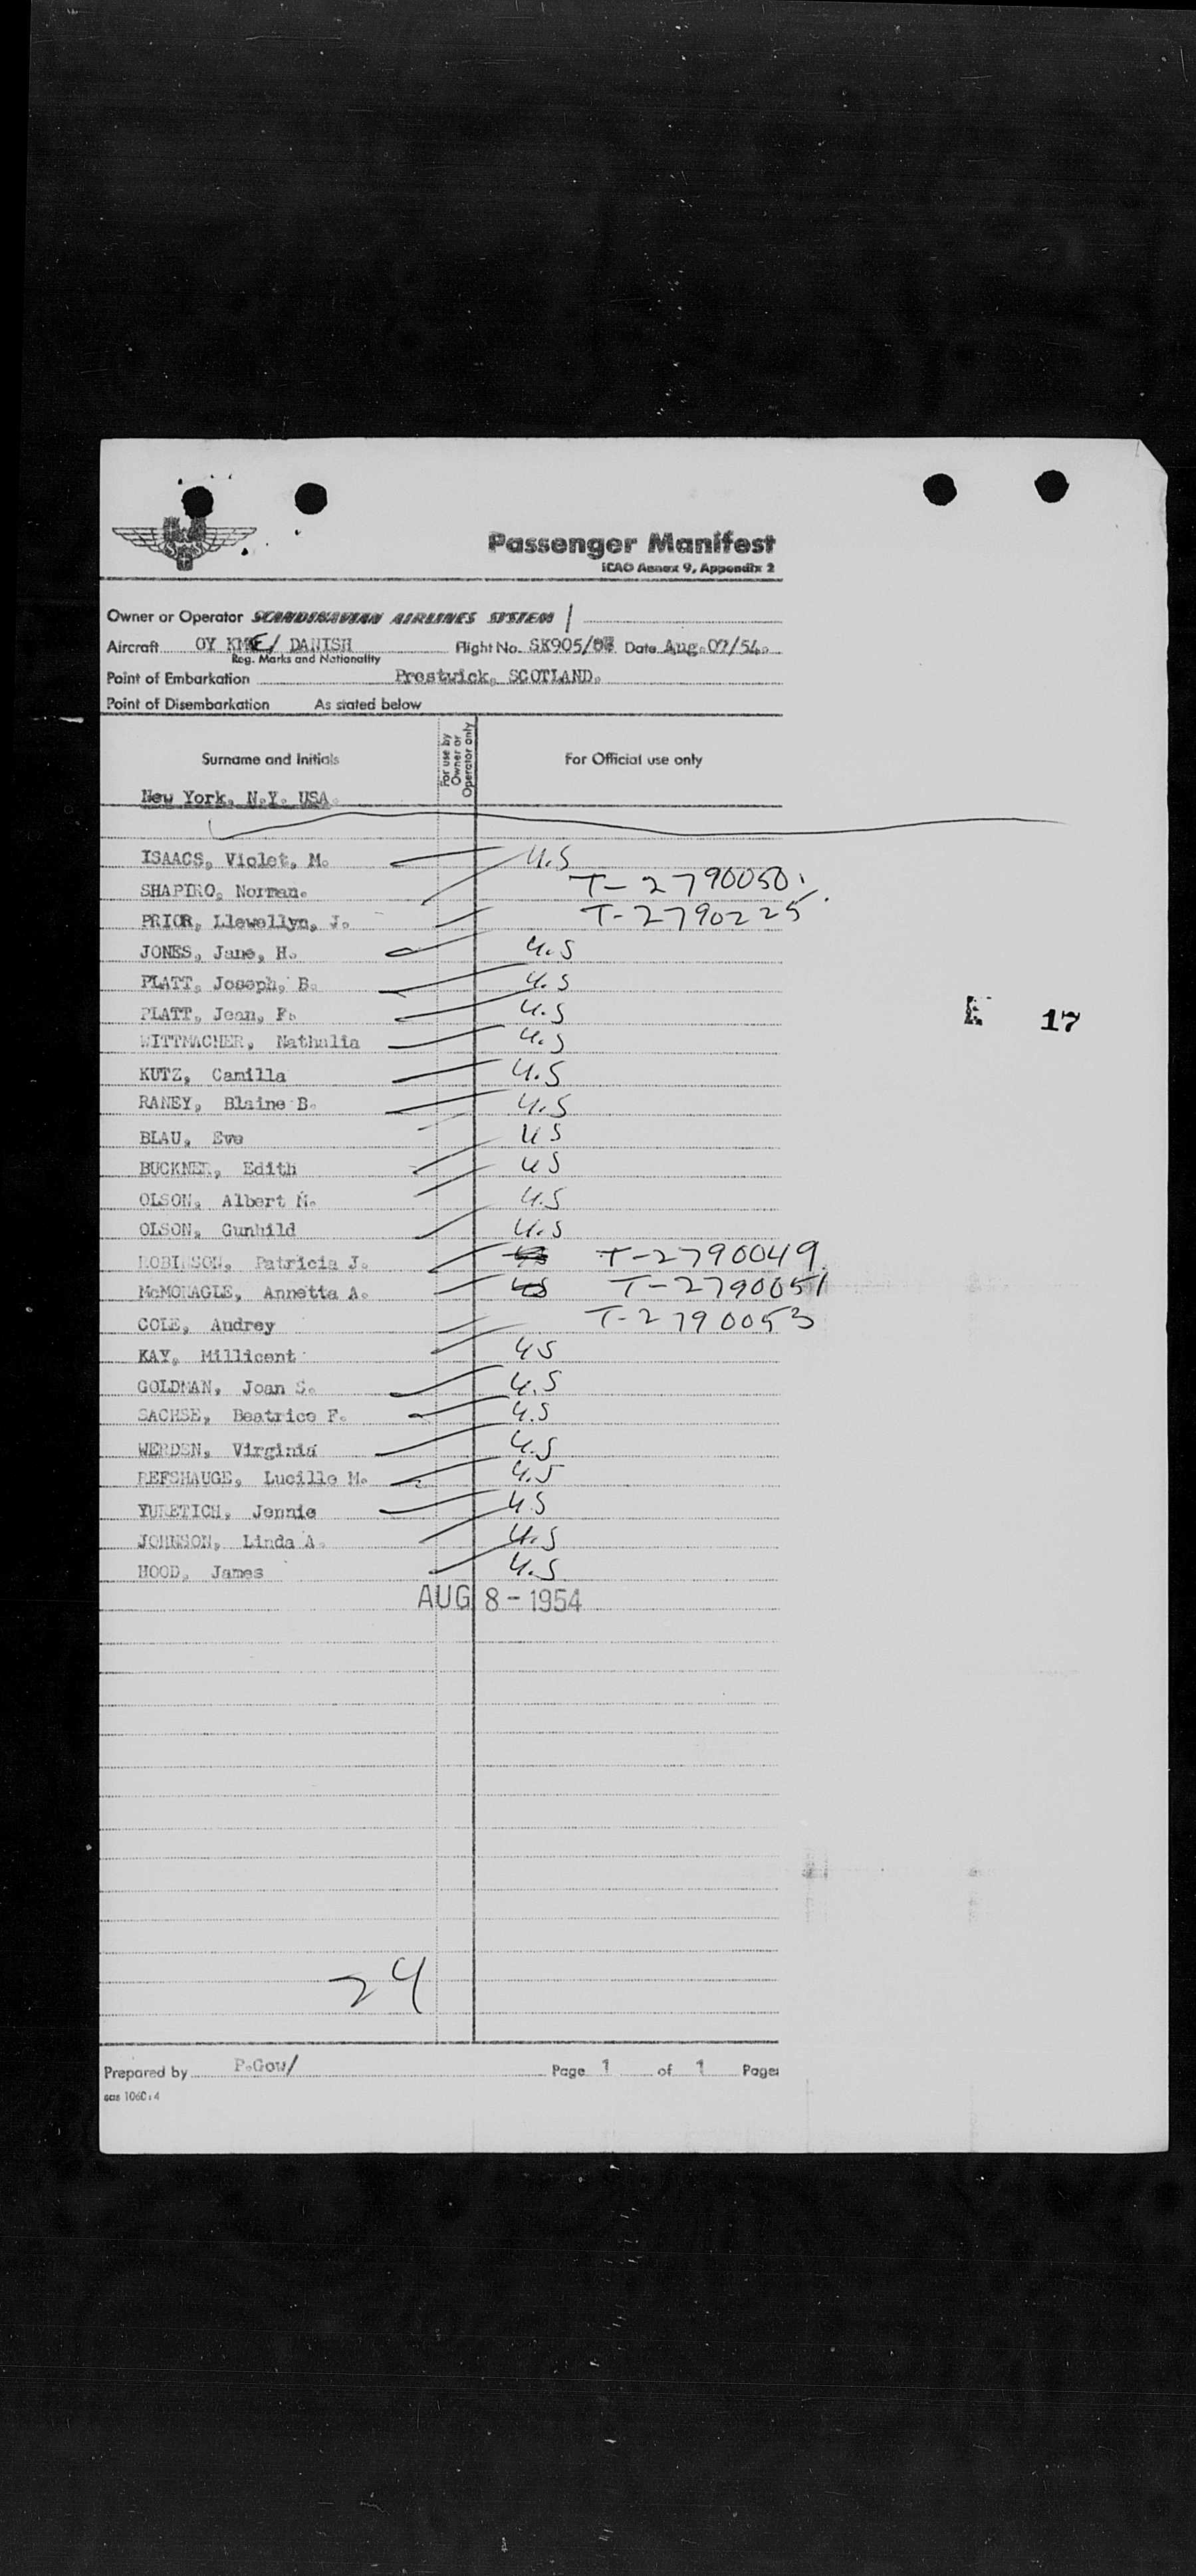 Passenger Manifest
ICAO Annex 9, Appendix 2
Owner or Operator SCANDINAVIAN AIRLINES SYSTEM /
Aircraft OY KME/ DANISH Flight No. SK905/ Date Aug. 07/54.
Reg. Marks and Nationality
Point of Embarkation Prestwick, SCOTLAND.
Point of Disembarkation As stated below
Surname and Initials For use by Owner or Operator only For Official use only
New York, N.Y. USA.
ISAACS, Violet, M. U.S
SHAPIRO, Norman. T-2790050
PRIOR, Llewellyn, J. T-2790225
JONES, Jane, H. U.S
PLATT, Joseph, B. U.S
PLATT, Jean, F. U.S
E 17
WITTMACHER, Nathalia U.S
KUTZ, Camilla U.S
RANEY, Blaine B. U.S
BLAU, Eve US
BUCKNER, Edith US
OLSON, Albert N. U.S
OLSON, Gunhild U.S
ROBINSON, Patricia J. US T-2790049
McMONAGLE, Annetta A. US T-2790051
COLE, Audrey T-2790053
KAY, Millicent US
GOLDMAN, Joan S. U.S
SACHSE, Beatrice F. U.S
WERDEN, Virginia U.S
REFSHAUGE, Lucille M. U.S
YURETICH, Jennie U.S
JOHNSON, Linda A. U.S
HOOD, James U.S
AUG 8 - 1954
24
Prepared by P.Gow/ Page 1 of 1 Pages
sas 1060:4